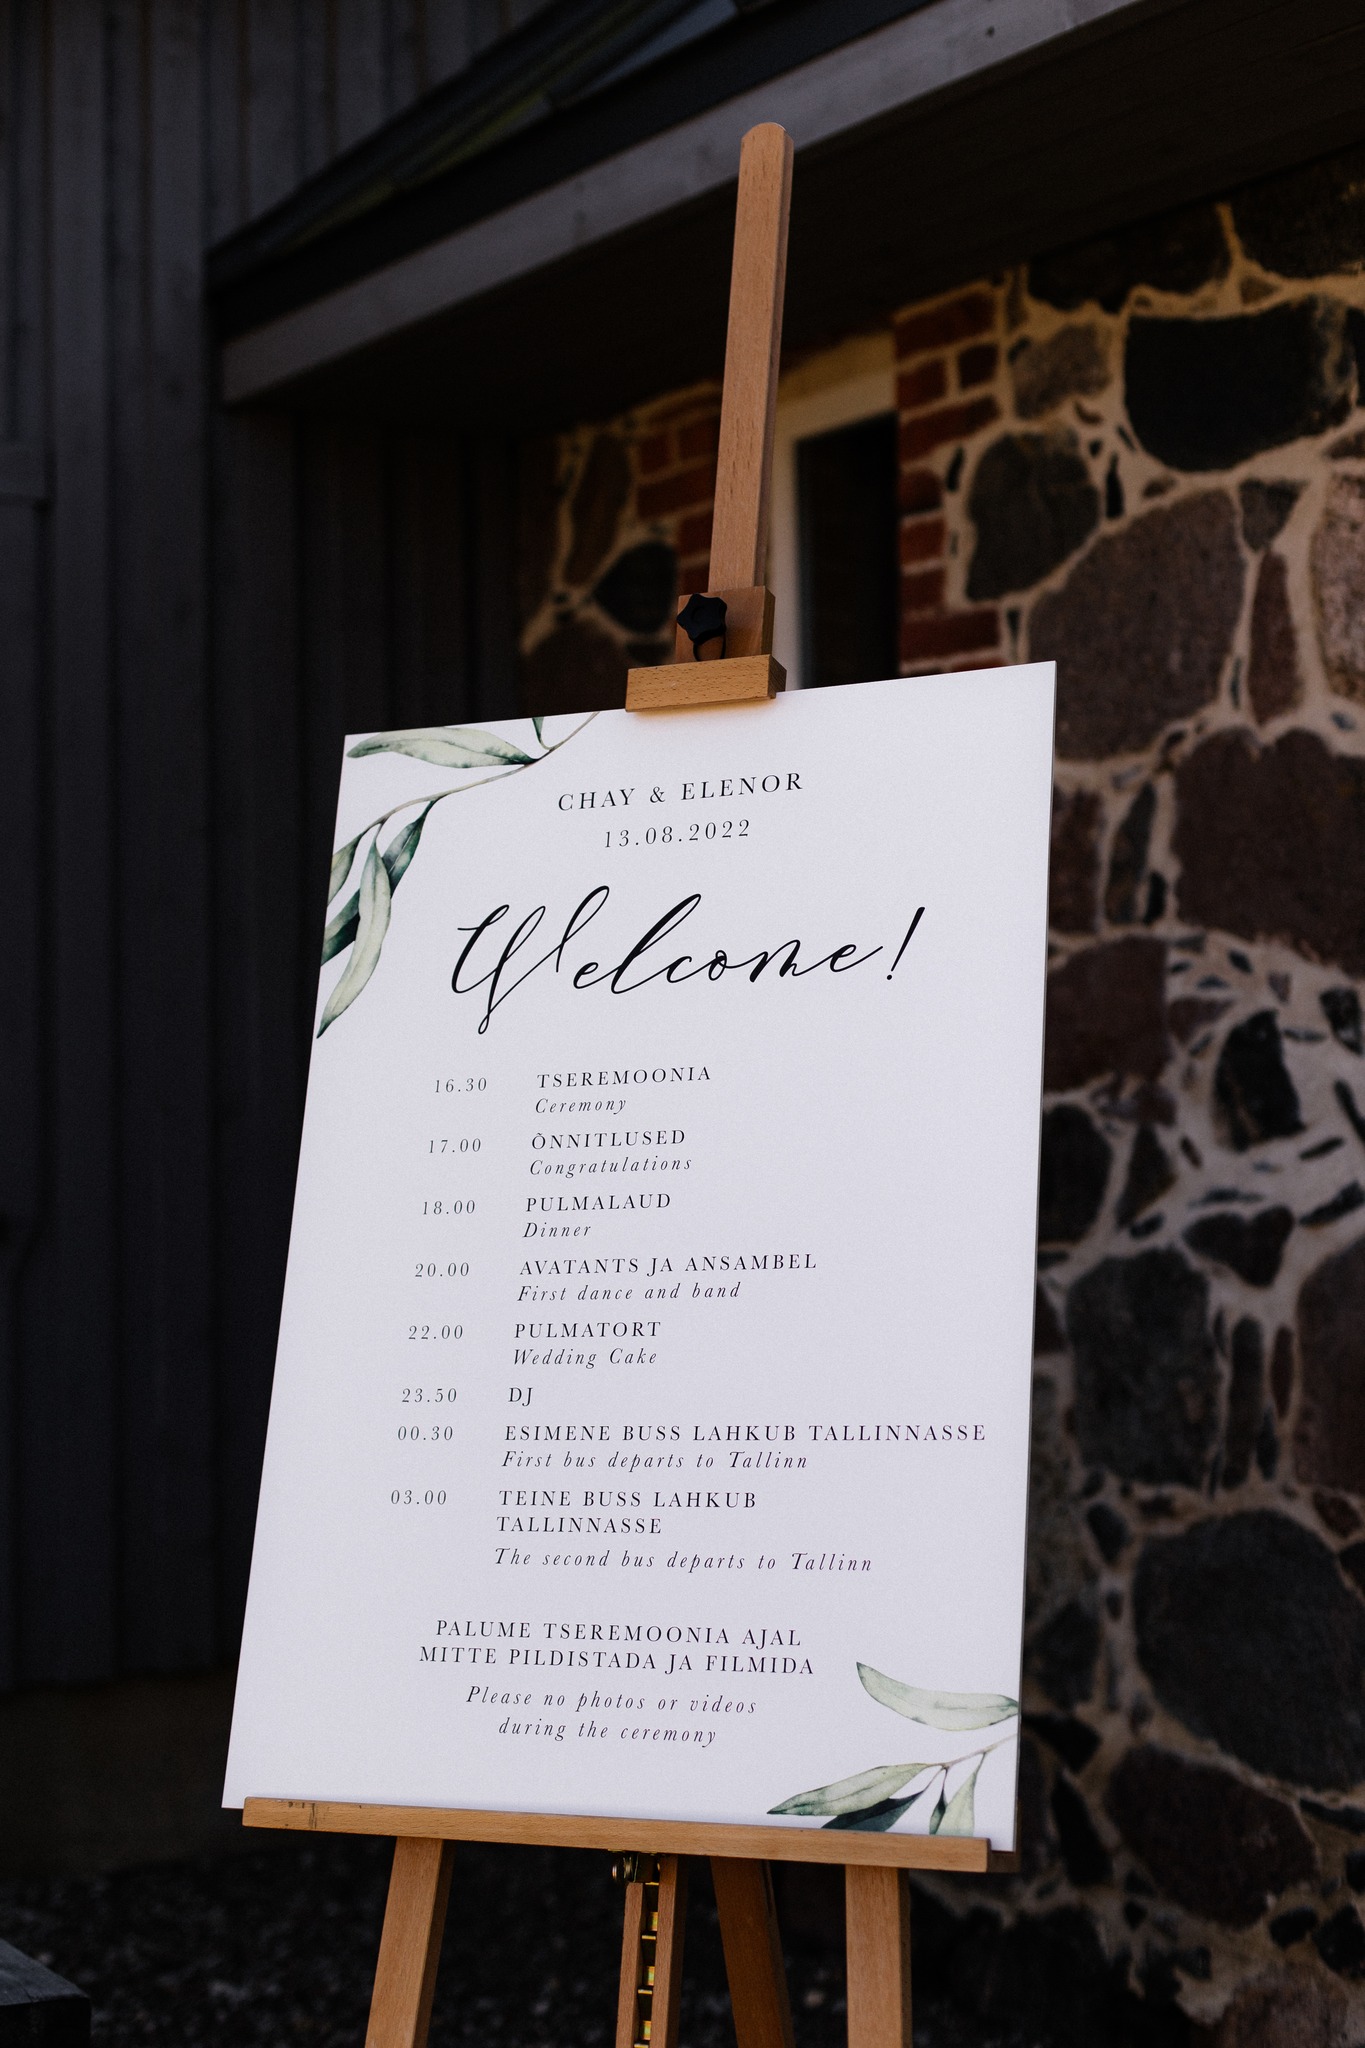 CHAY & ELENOR
13.08.2022
Welcome!
16.30 TSEREMOONIA
Ceremony
17.00 ÕNNITLUSED
Congratulations
18.00 PULMALAUD
Dinner
20.00 AVATANTS JA ANSAMBEL
First dance and band
22.00 PULMATORT
Wedding Cake
23.50 DJ
00.30 ESIMENE BUSS LAHKUB TALLINNASSE
First bus departs to Tallinn
03.00 TEINE BUSS LAHKUB
TALLINNASSE
The second bus departs to Tallinn
PALUME TSEREMOONIA AJAL
MITTE PILDISTADA JA FILMIDA
Please no photos or videos
during the ceremony